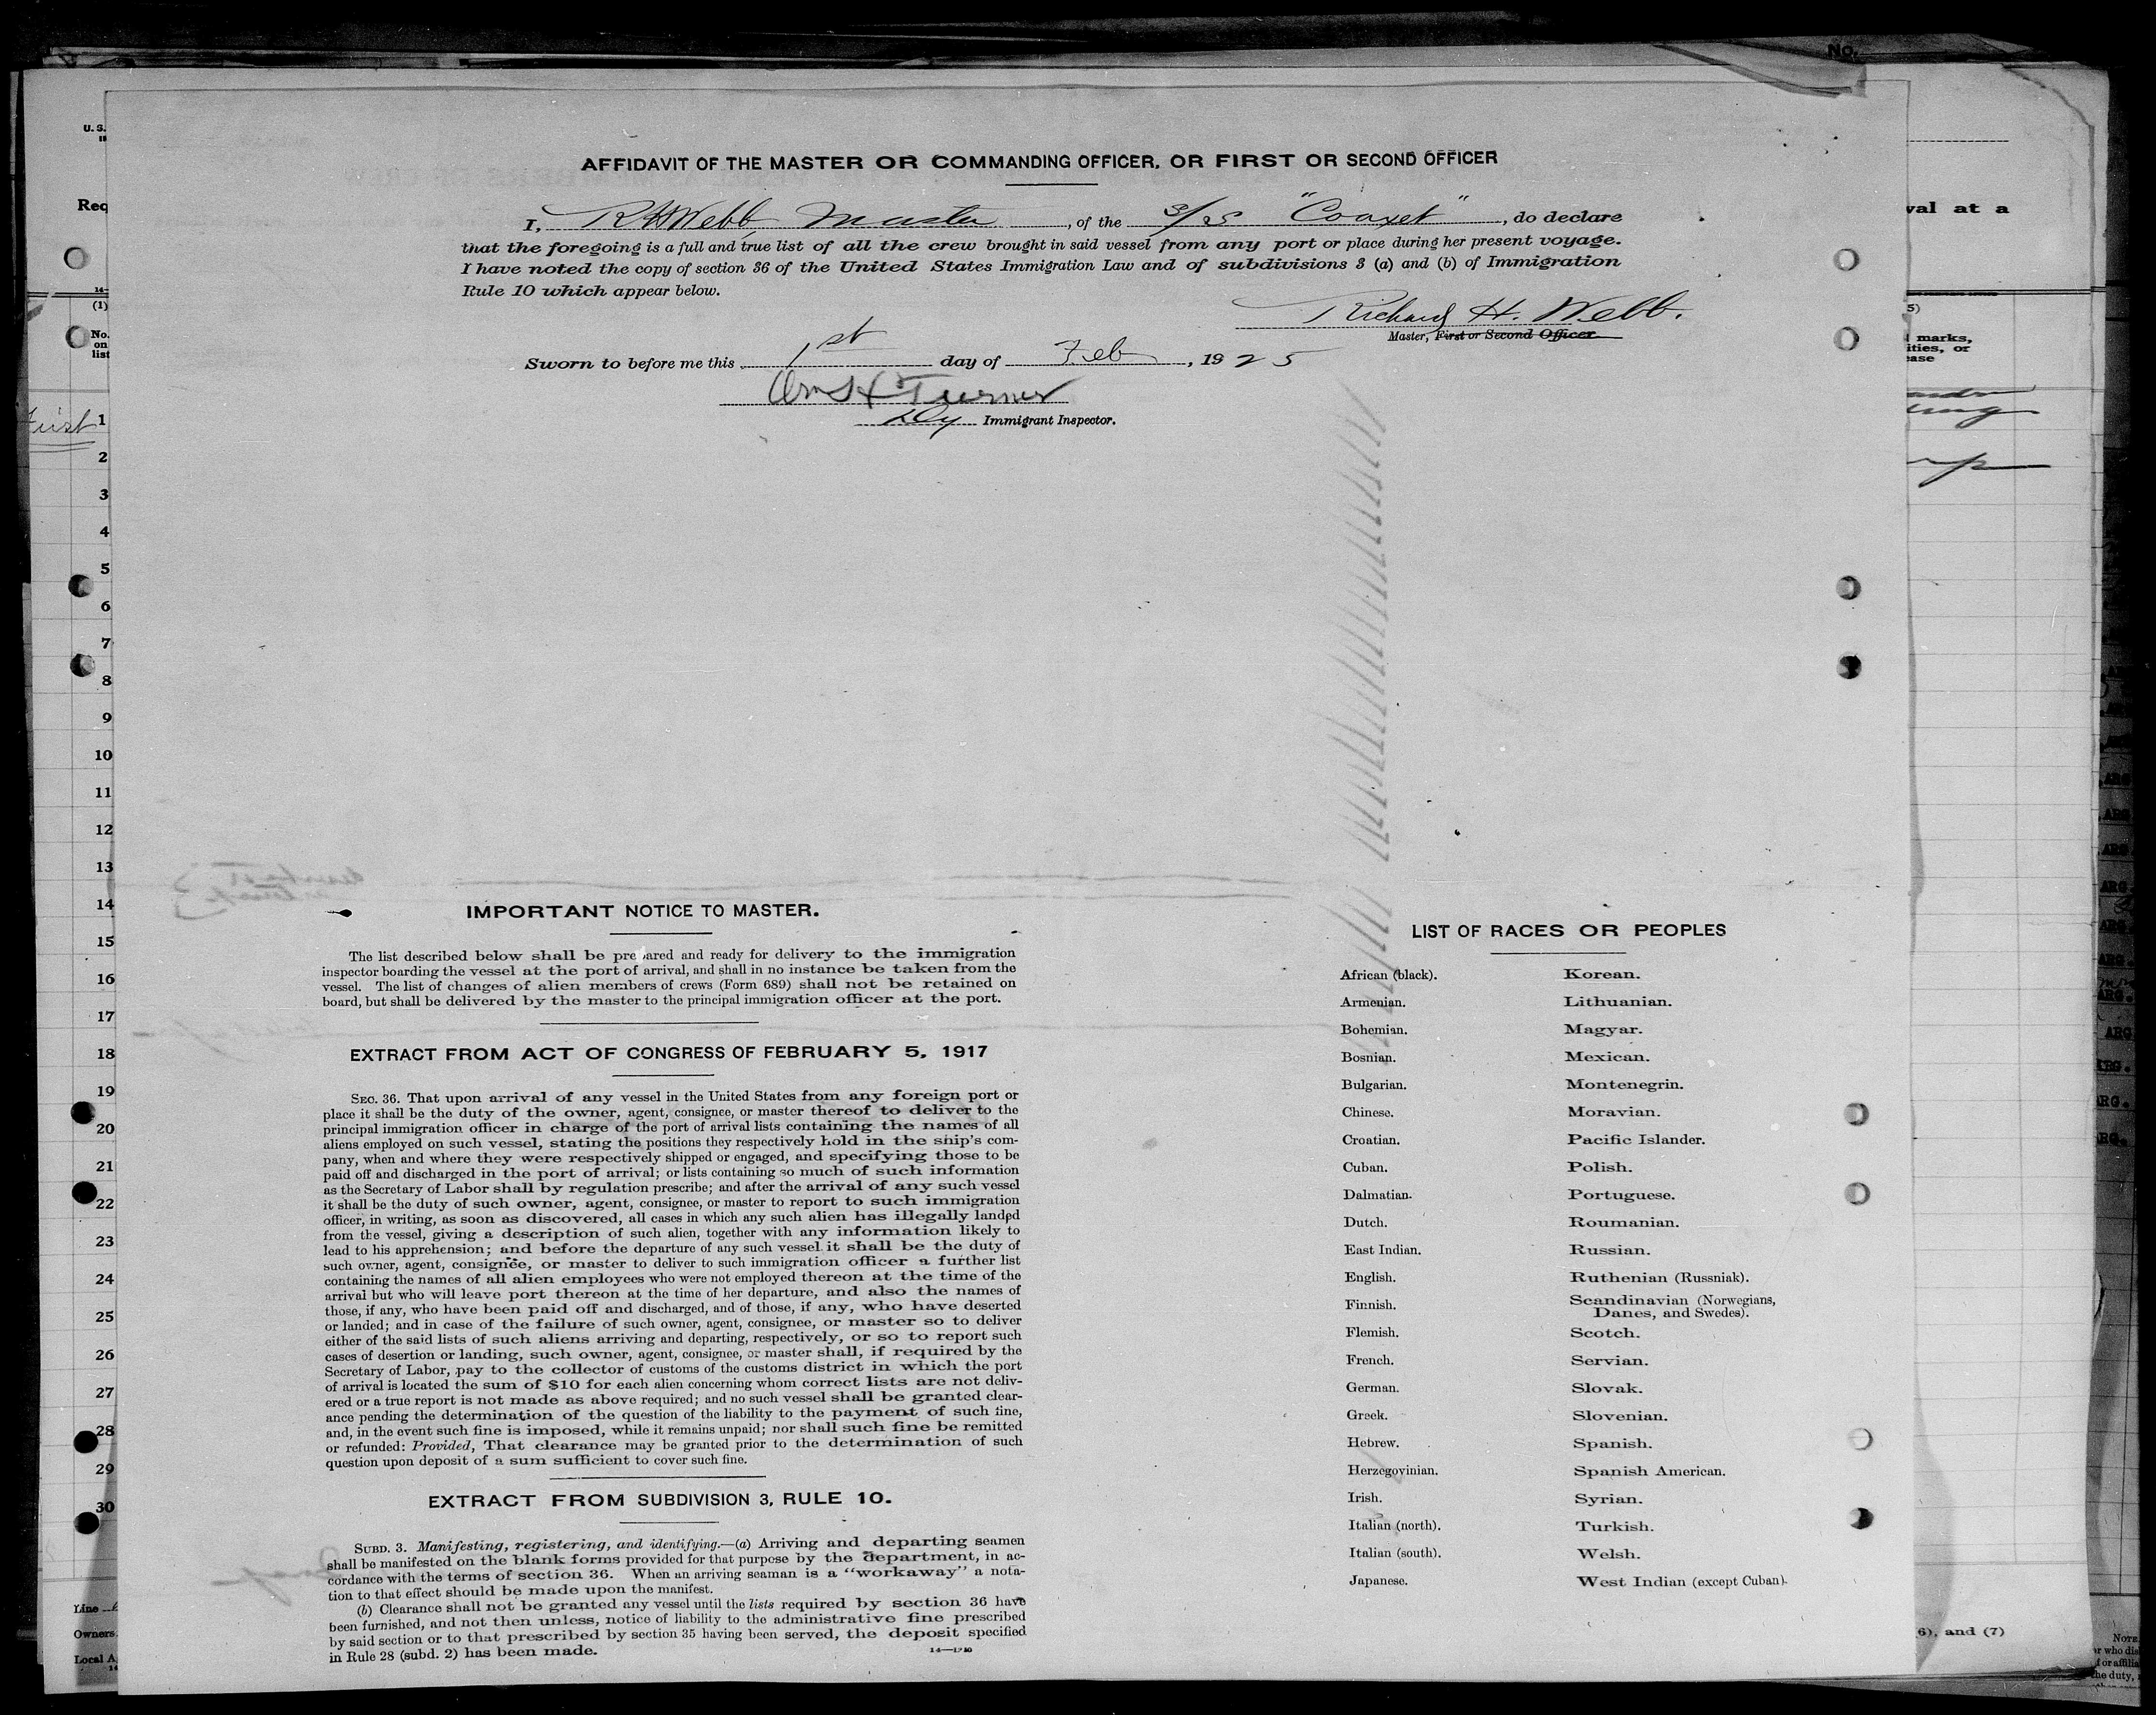 No.
U. S.
AFFIDAVIT OF THE MASTER OR COMMANDING OFFICER, OR FIRST OR SECOND OFFICER
Req
val at a
I, R H Webb Master, of the S/S "Coaxet", do declare
that the foregoing is a full and true list of all the crew brought in said vessel from any port or place during her present voyage.
I have noted the copy of section 36 of the United States Immigration Law and of subdivisions 3 (a) and (b) of Immigration
Rule 10 which appear below.
Richard H. Webb.
Master, First or Second Officer
Sworn to before me this 1st day of Feb, 1925
Turner
Immigrant Inspector.
(1)
No.
on
list
5)
marks,
ities, or
ease
First
1
2
3
4
5
6
7
8
9
10
11
12
13
14
15
16
17
18
19
20
21
22
23
24
25
26
27
28
29
30
IMPORTANT NOTICE TO MASTER.
The list described below shall be prepared and ready for delivery to the immigration
inspector boarding the vessel at the port of arrival, and shall in no instance be taken from the
vessel. The list of changes of alien members of crews (Form 689) shall not be retained on
board, but shall be delivered by the master to the principal immigration officer at the port.
EXTRACT FROM ACT OF CONGRESS OF FEBRUARY 5, 1917
SEC. 36. That upon arrival of any vessel in the United States from any foreign port or
place it shall be the duty of the owner, agent, consignee, or master thereof to deliver to the
principal immigration officer in charge of the port of arrival lists containing the names of all
aliens employed on such vessel, stating the positions they respectively hold in the ship's com-
pany, when and where they were respectively shipped or engaged, and specifying those to be
paid off and discharged in the port of arrival; or lists containing so much of such information
as the Secretary of Labor shall by regulation prescribe; and after the arrival of any such vessel
it shall be the duty of such owner, agent, consignee, or master to report to such immigration
officer, in writing, as soon as discovered, all cases in which any such alien has illegally landed
from the vessel, giving a description of such alien, together with any information likely to
lead to his apprehension; and before the departure of any such vessel it shall be the duty of
such owner, agent, consignee, or master to deliver to such immigration officer a further list
containing the names of all alien employees who were not employed thereon at the time of the
arrival but who will leave port thereon at the time of her departure, and also the names of
those, if any, who have been paid off and discharged, and of those, if any, who have deserted
or landed; and in case of the failure of such owner, agent, consignee, or master so to deliver
either of the said lists of such aliens arriving and departing, respectively, or so to report such
cases of desertion or landing, such owner, agent, consignee, or master shall, if required by the
Secretary of Labor, pay to the collector of customs of the customs district in which the port
of arrival is located the sum of $10 for each alien concerning whom correct lists are not deliv-
ered or a true report is not made as above required; and no such vessel shall be granted clear-
ance pending the determination of the question of the liability to the payment of such fine,
and, in the event such fine is imposed, while it remains unpaid; nor shall such fine be remitted
or refunded: Provided, That clearance may be granted prior to the determination of such
question upon deposit of a sum sufficient to cover such fine.
EXTRACT FROM SUBDIVISION 3, RULE 10.
SUBD. 3. Manifesting, registering, and identifying.—(a) Arriving and departing seamen
shall be manifested on the blank forms provided for that purpose by the department, in ac-
cordance with the terms of section 36. When an arriving seaman is a "workaway" a nota-
tion to that effect should be made upon the manifest.
(b) Clearance shall not be granted any vessel until the lists required by section 36 have
been furnished, and not then unless, notice of liability to the administrative fine prescribed
by said section or to that prescribed by section 35 having been served, the deposit specified
in Rule 28 (subd. 2) has been made.
LIST OF RACES OR PEOPLES
African (black).
Armenian.
Bohemian.
Bosnian.
Bulgarian.
Chinese.
Croatian.
Cuban.
Dalmatian.
Dutch.
East Indian.
English.
Finnish.
Flemish.
French.
German.
Greek.
Hebrew.
Herzegovinian.
Irish.
Italian (north).
Italian (south).
Japanese.
Korean.
Lithuanian.
Magyar.
Mexican.
Montenegrin.
Moravian.
Pacific Islander.
Polish.
Portuguese.
Roumanian.
Russian.
Ruthenian (Russniak).
Scandinavian (Norwegians,
Danes, and Swedes).
Scotch.
Servian.
Slovak.
Slovenian.
Spanish.
Spanish American.
Syrian.
Turkish.
Welsh.
West Indian (except Cuban).
Line
Owners
Local A
6), and (7)
NOTE
or who dis
the duty,